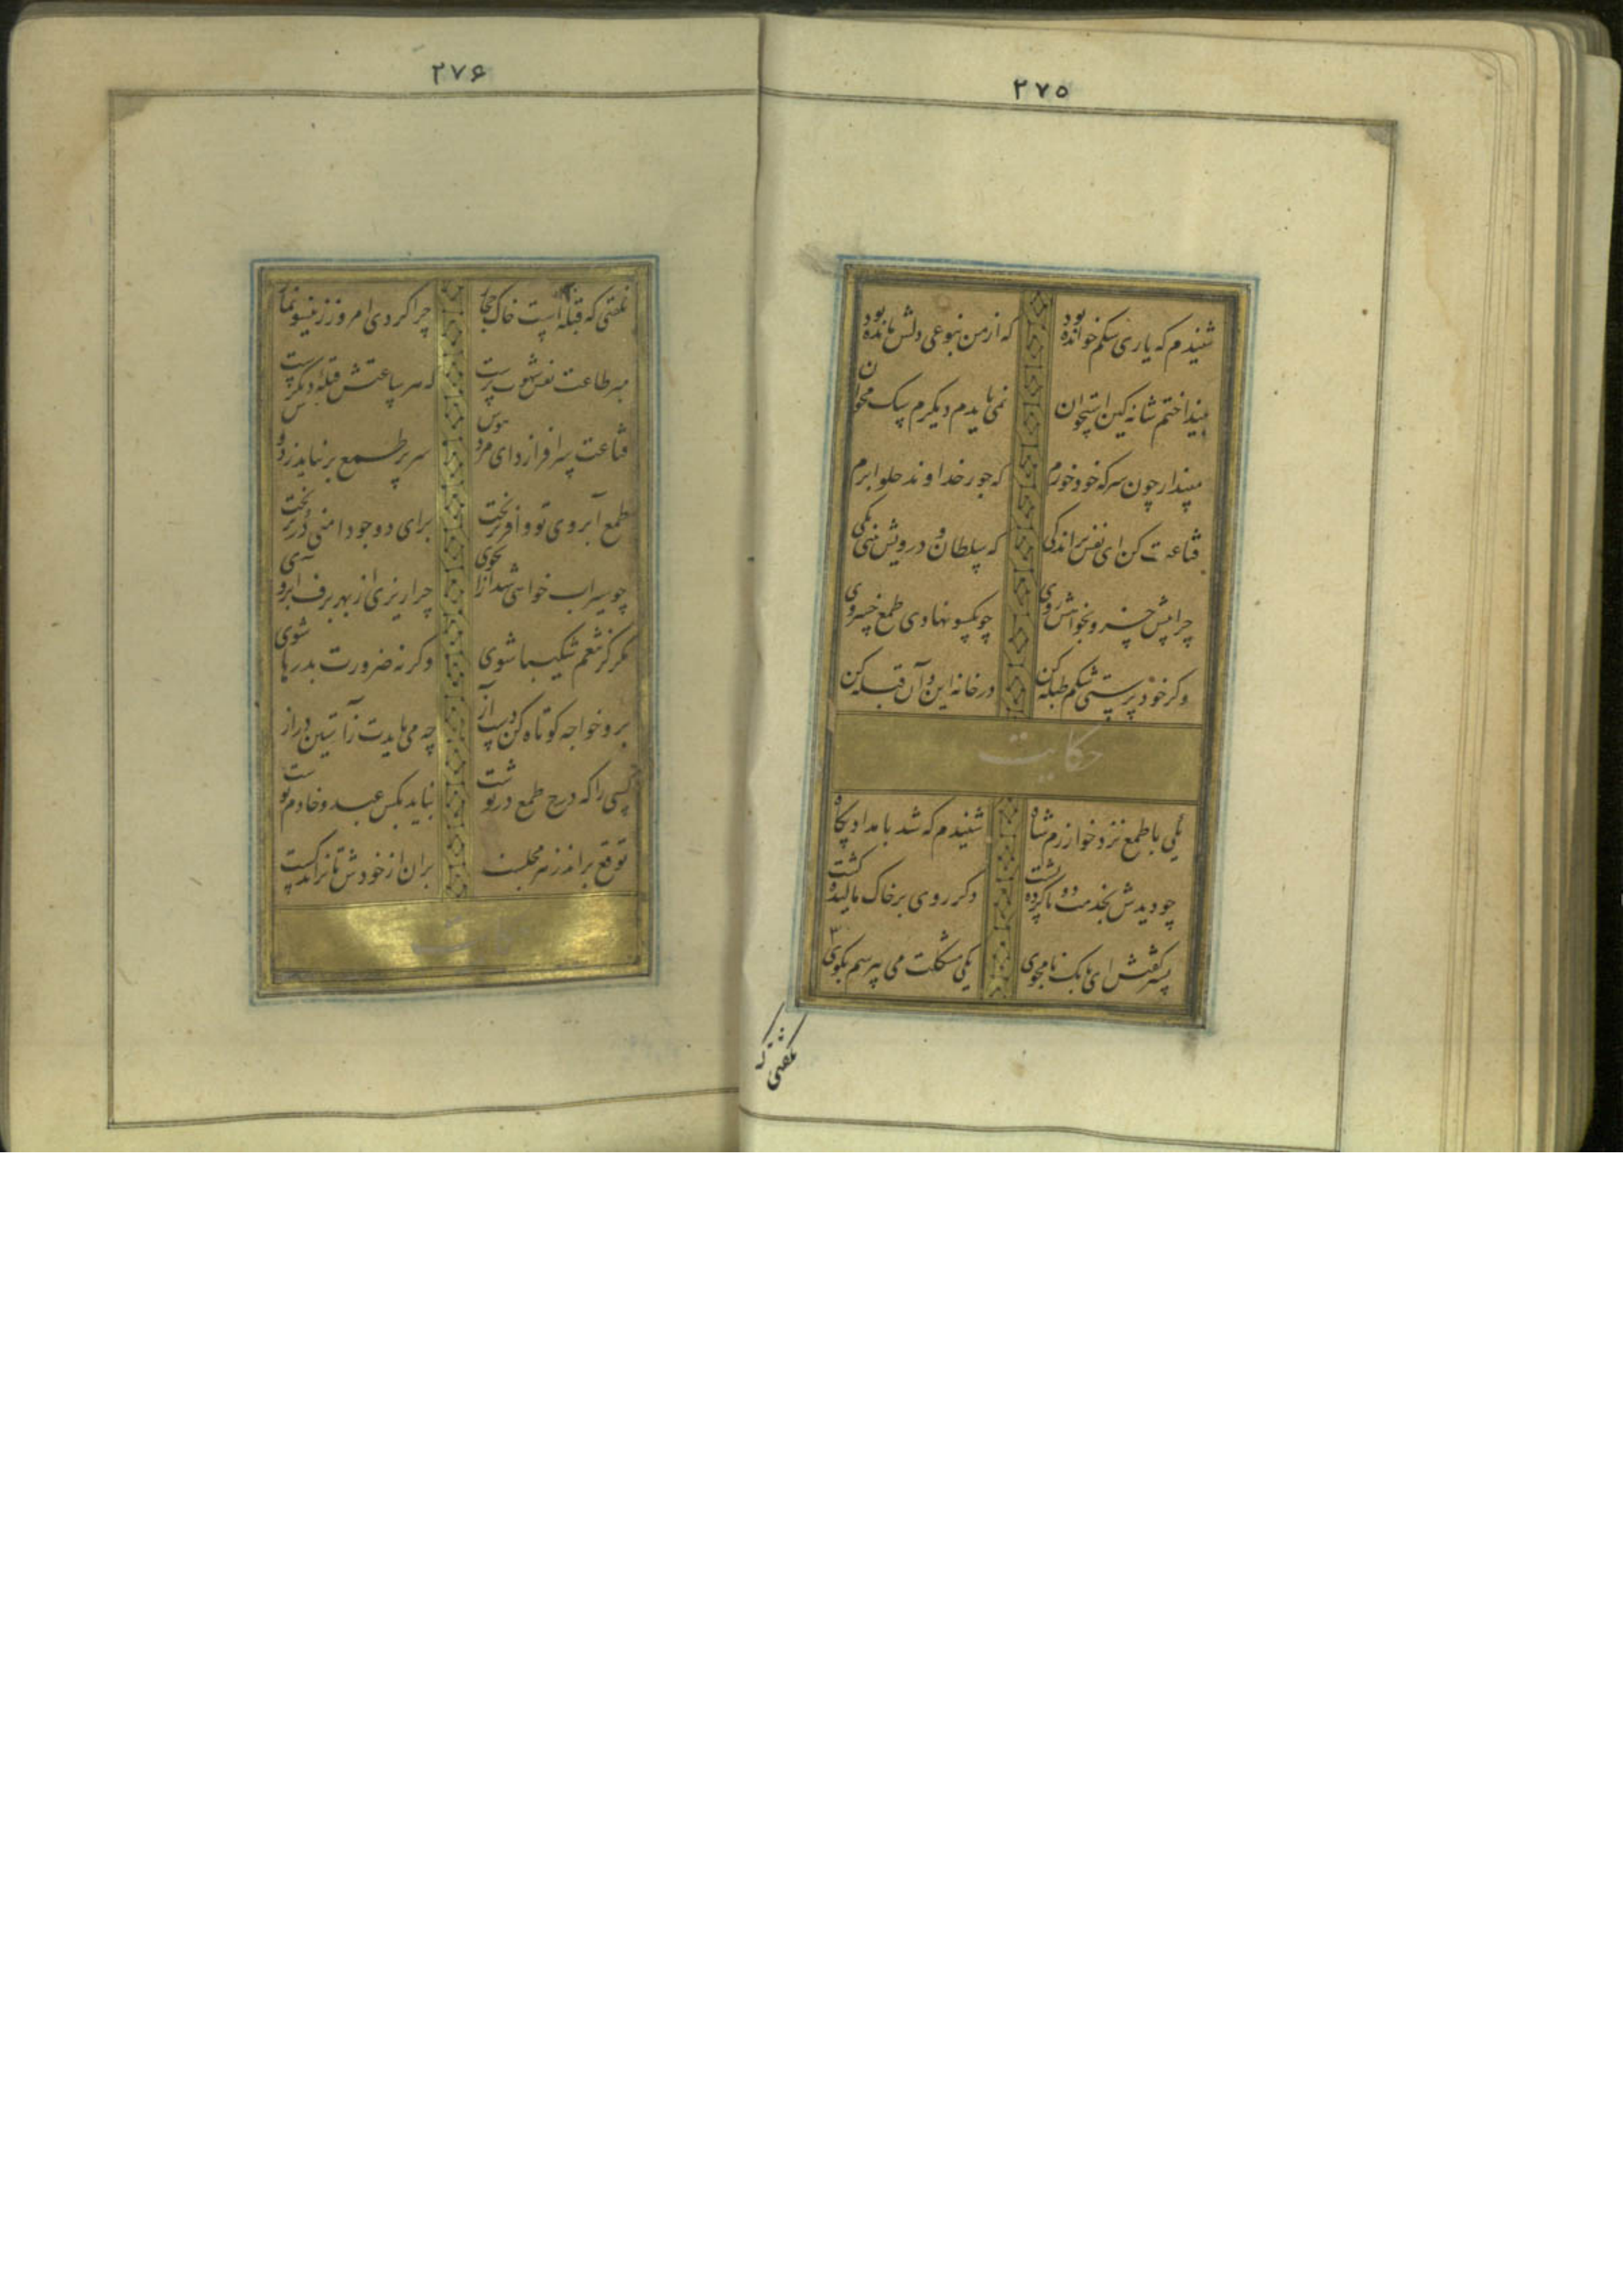 ۲۷۵
شنیدم که باری سگم خوانده بود که از من بنوعی دلش مانده بود
بینداختم شانه کین استخوان نمی بایدم دیگرم سگ مخوان
مپندار چون سرکه خود خورم که جور خداوند حلوا برم
قناعت کن ای نفس بر اندکی که سلطان و درویش بینی یکی
چرا پیش خسرو بخواهش روی چو یکسو نهادی طمع خسروی
وکر خود پرستی شکم طبله کن در خانه این و آن قبله کن
حکایت
یکی با طمع نزد خوارزم شاه شنیدم که شد بامدادی پکاه
چو دیدش بخدمت دوتا کرده پشت دکر روی بر خاک مالیده کشت
پسر کفتش ای بابک نامجوی یکی مشکلت می بپرسم بکوی
نکفتی که
۲۷۶
نکفتی که قبله است خاک حجاز چرا کردی امروز ازینسو نماز
مبر طاعت نفس شهوت پرست که هر ساعتش قبله دیکرست
قناعت سرافرازد ای مرد هوس سر پر طمع بر نیاید ز دوس
طمع آبروی تو وافر بریخت برای دو جو دامنی در بریخت
چو سیراب خواهی شد از آب جوی چرا ریزی از بهر برف آبروی
مکر کز تنعم شکیبا شوی وکرنه ضرورت بدرها شوی
برو خواجه کوتاه کن دست آز چه می بایدت ز آستین دراز
کسی را که درج طمع در نوشت نباید بکس عبد و خادم نوشت
توقع براند ز هر مجلست بران از خودش تا نراند کست